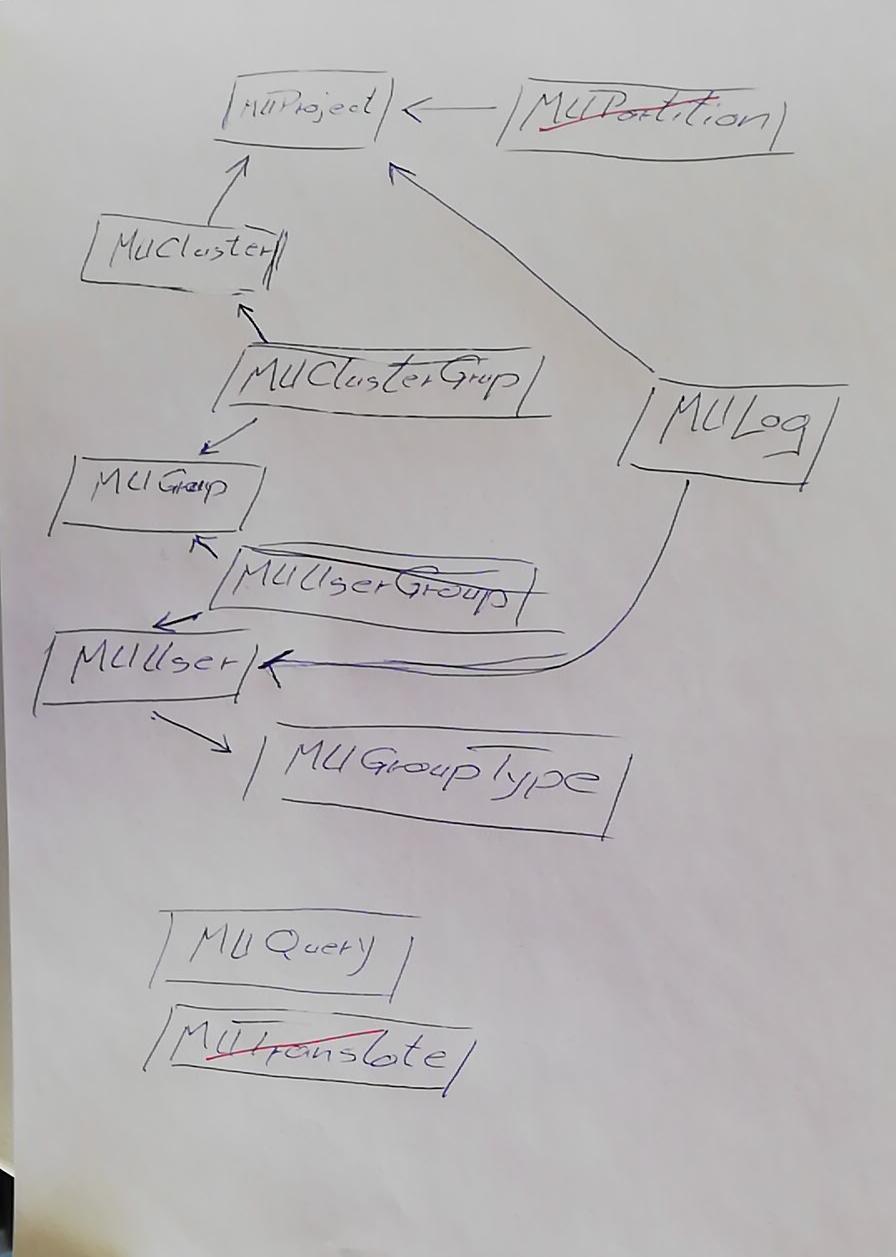 MUProject
MUPartition
MUCluster
MUClusterGrup
MULog
MUGroup
MUUserGroup
MUUser
MUGroupType
MUQuery
MUTranslate